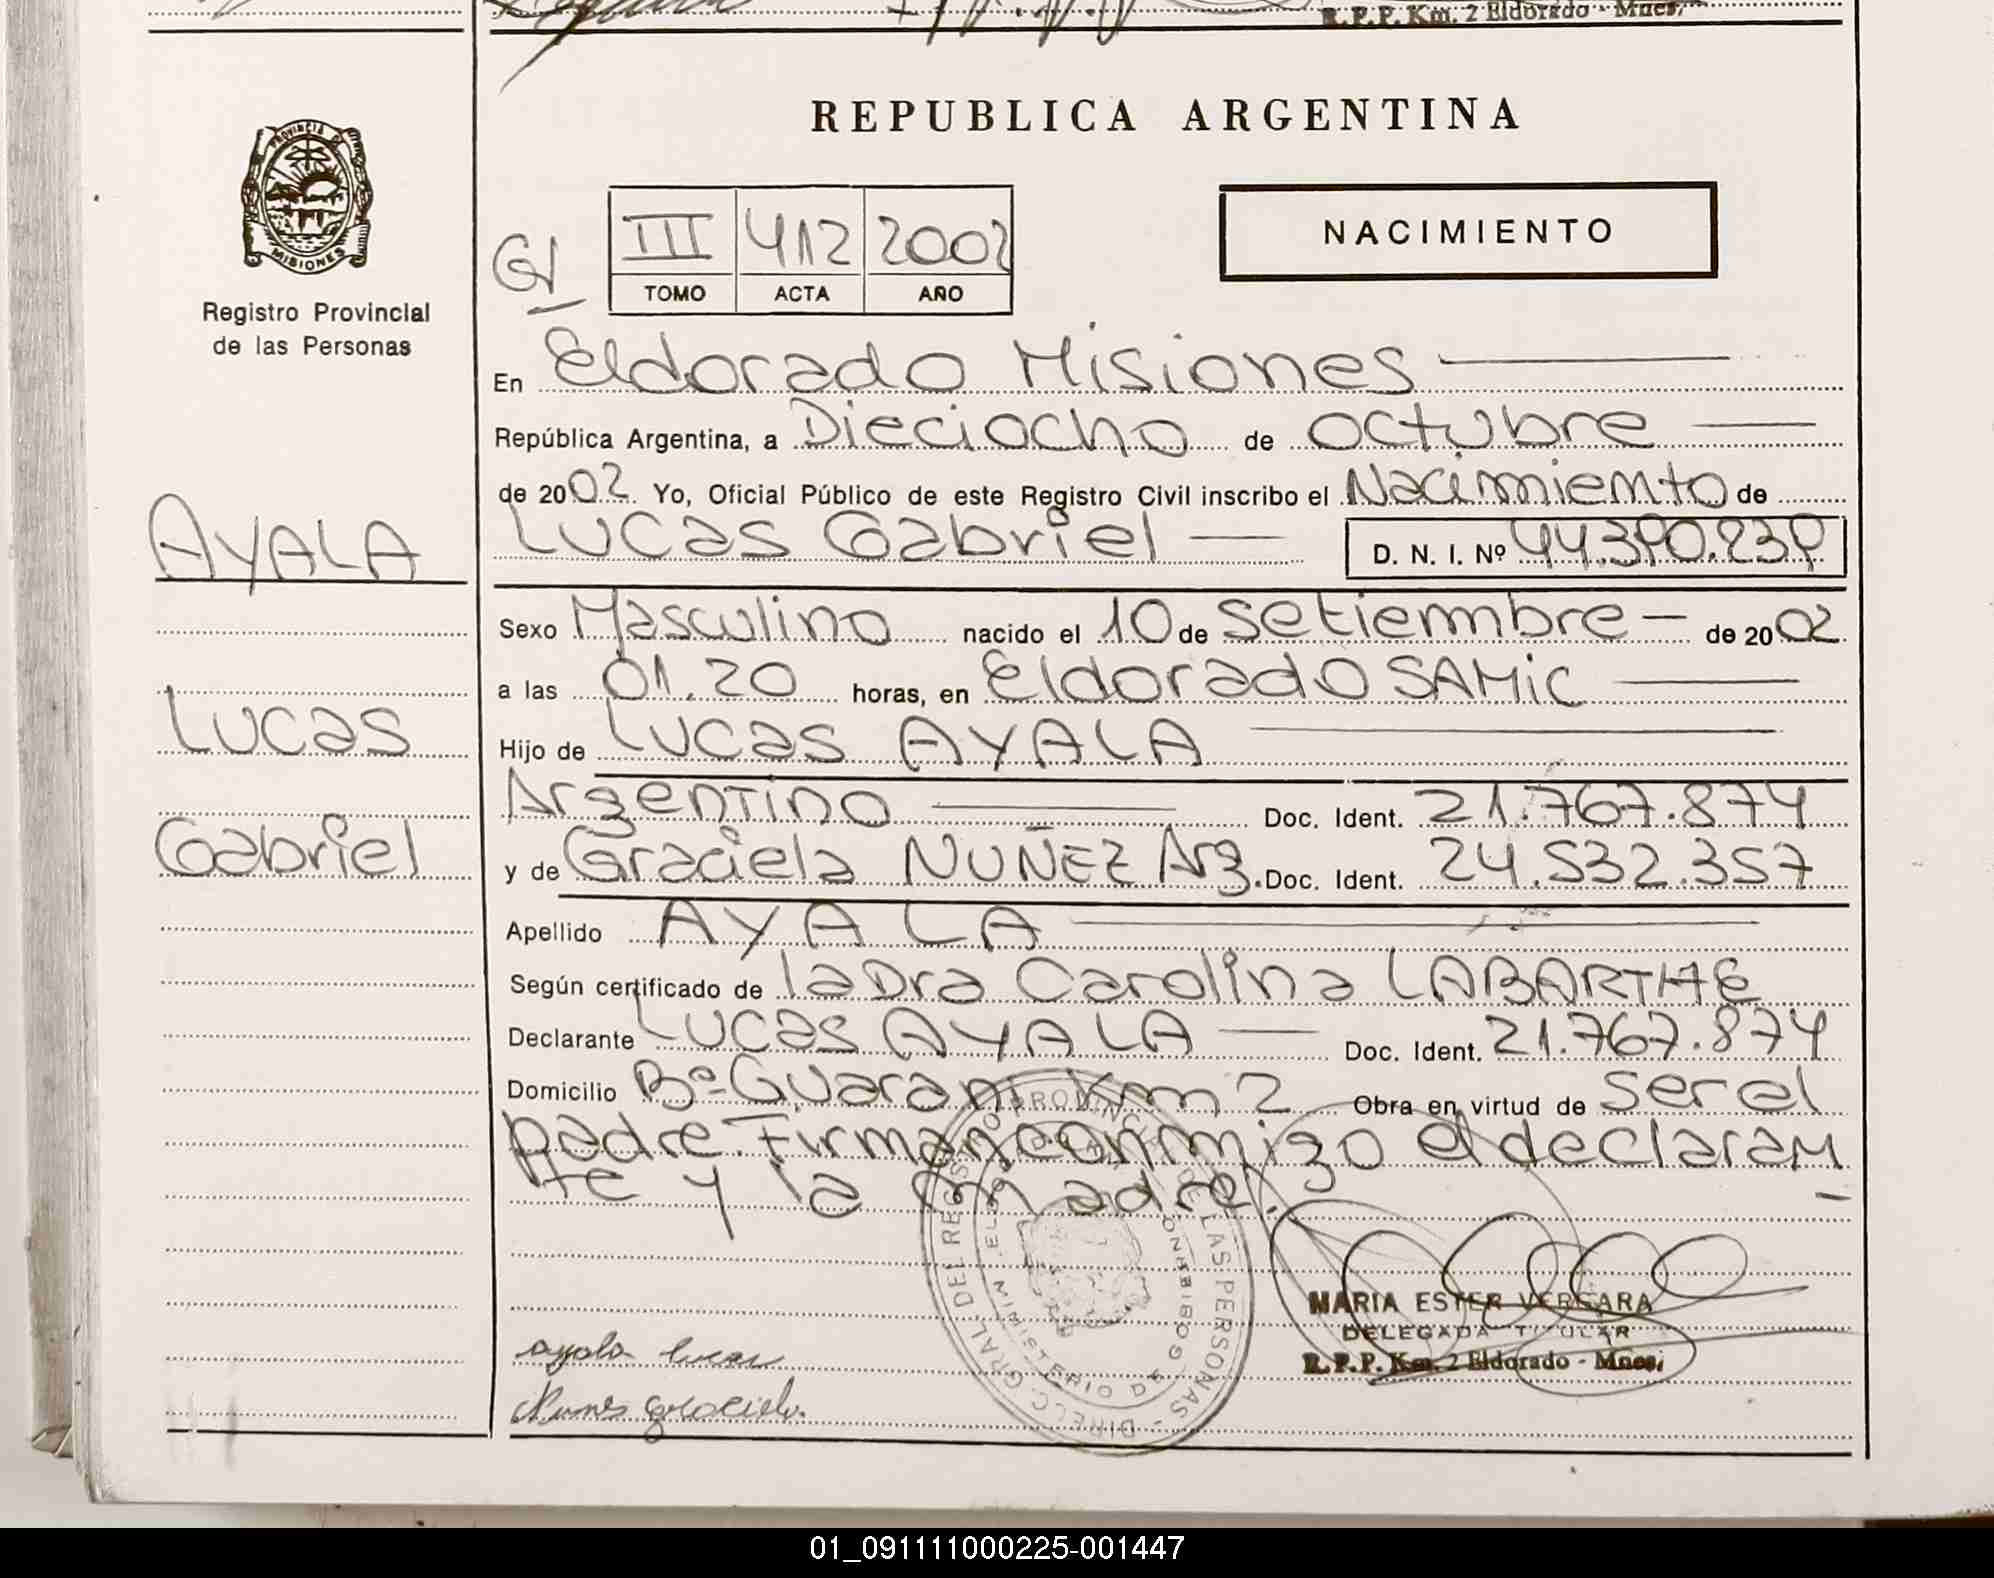 R.P.P. Km. 2 Eldorado - Mnes.
REPUBLICA ARGENTINA
PROVINCIA DE
MISIONES
Registro Provincial
de las Personas
III 412 2002
TOMO ACTA AÑO
NACIMIENTO
En Eldorado Misiones
República Argentina, a Dieciocho de octubre
de 2002. Yo, Oficial Público de este Registro Civil inscribo el Nacimiento de
Lucas Gabriel D. N. I. Nº 44.390.239
AYALA
Sexo Masculino nacido el 10 de Setiembre de 2002
a las 01.20 horas, en Eldorado SAMiC
Lucas
Hijo de Lucas AYALA
Argentino Doc. Ident. 21.767.874
Gabriel
y de Graciela NUÑEZ Arg. Doc. Ident. 24.532.357
Apellido AYALA
Según certificado de la Dra Carolina LABARTHE
Declarante Lucas AYALA Doc. Ident. 21.767.874
Domicilio Bº Guarani Km 2 Obra en virtud de ser el
padre. Firman conmigo el declaran
te y la madre.
DIRECC. GRAL. DEL REGISTRO PROVINCIAL DE LAS PERSONAS
MINISTERIO DE GOBIERNO
MARIA ESTER VERGARA
DELEGADA TITULAR
R.P.P. Km. 2 Eldorado - Mnes.
ayala lucas
Nunes graciela.
01_091111000225-001447